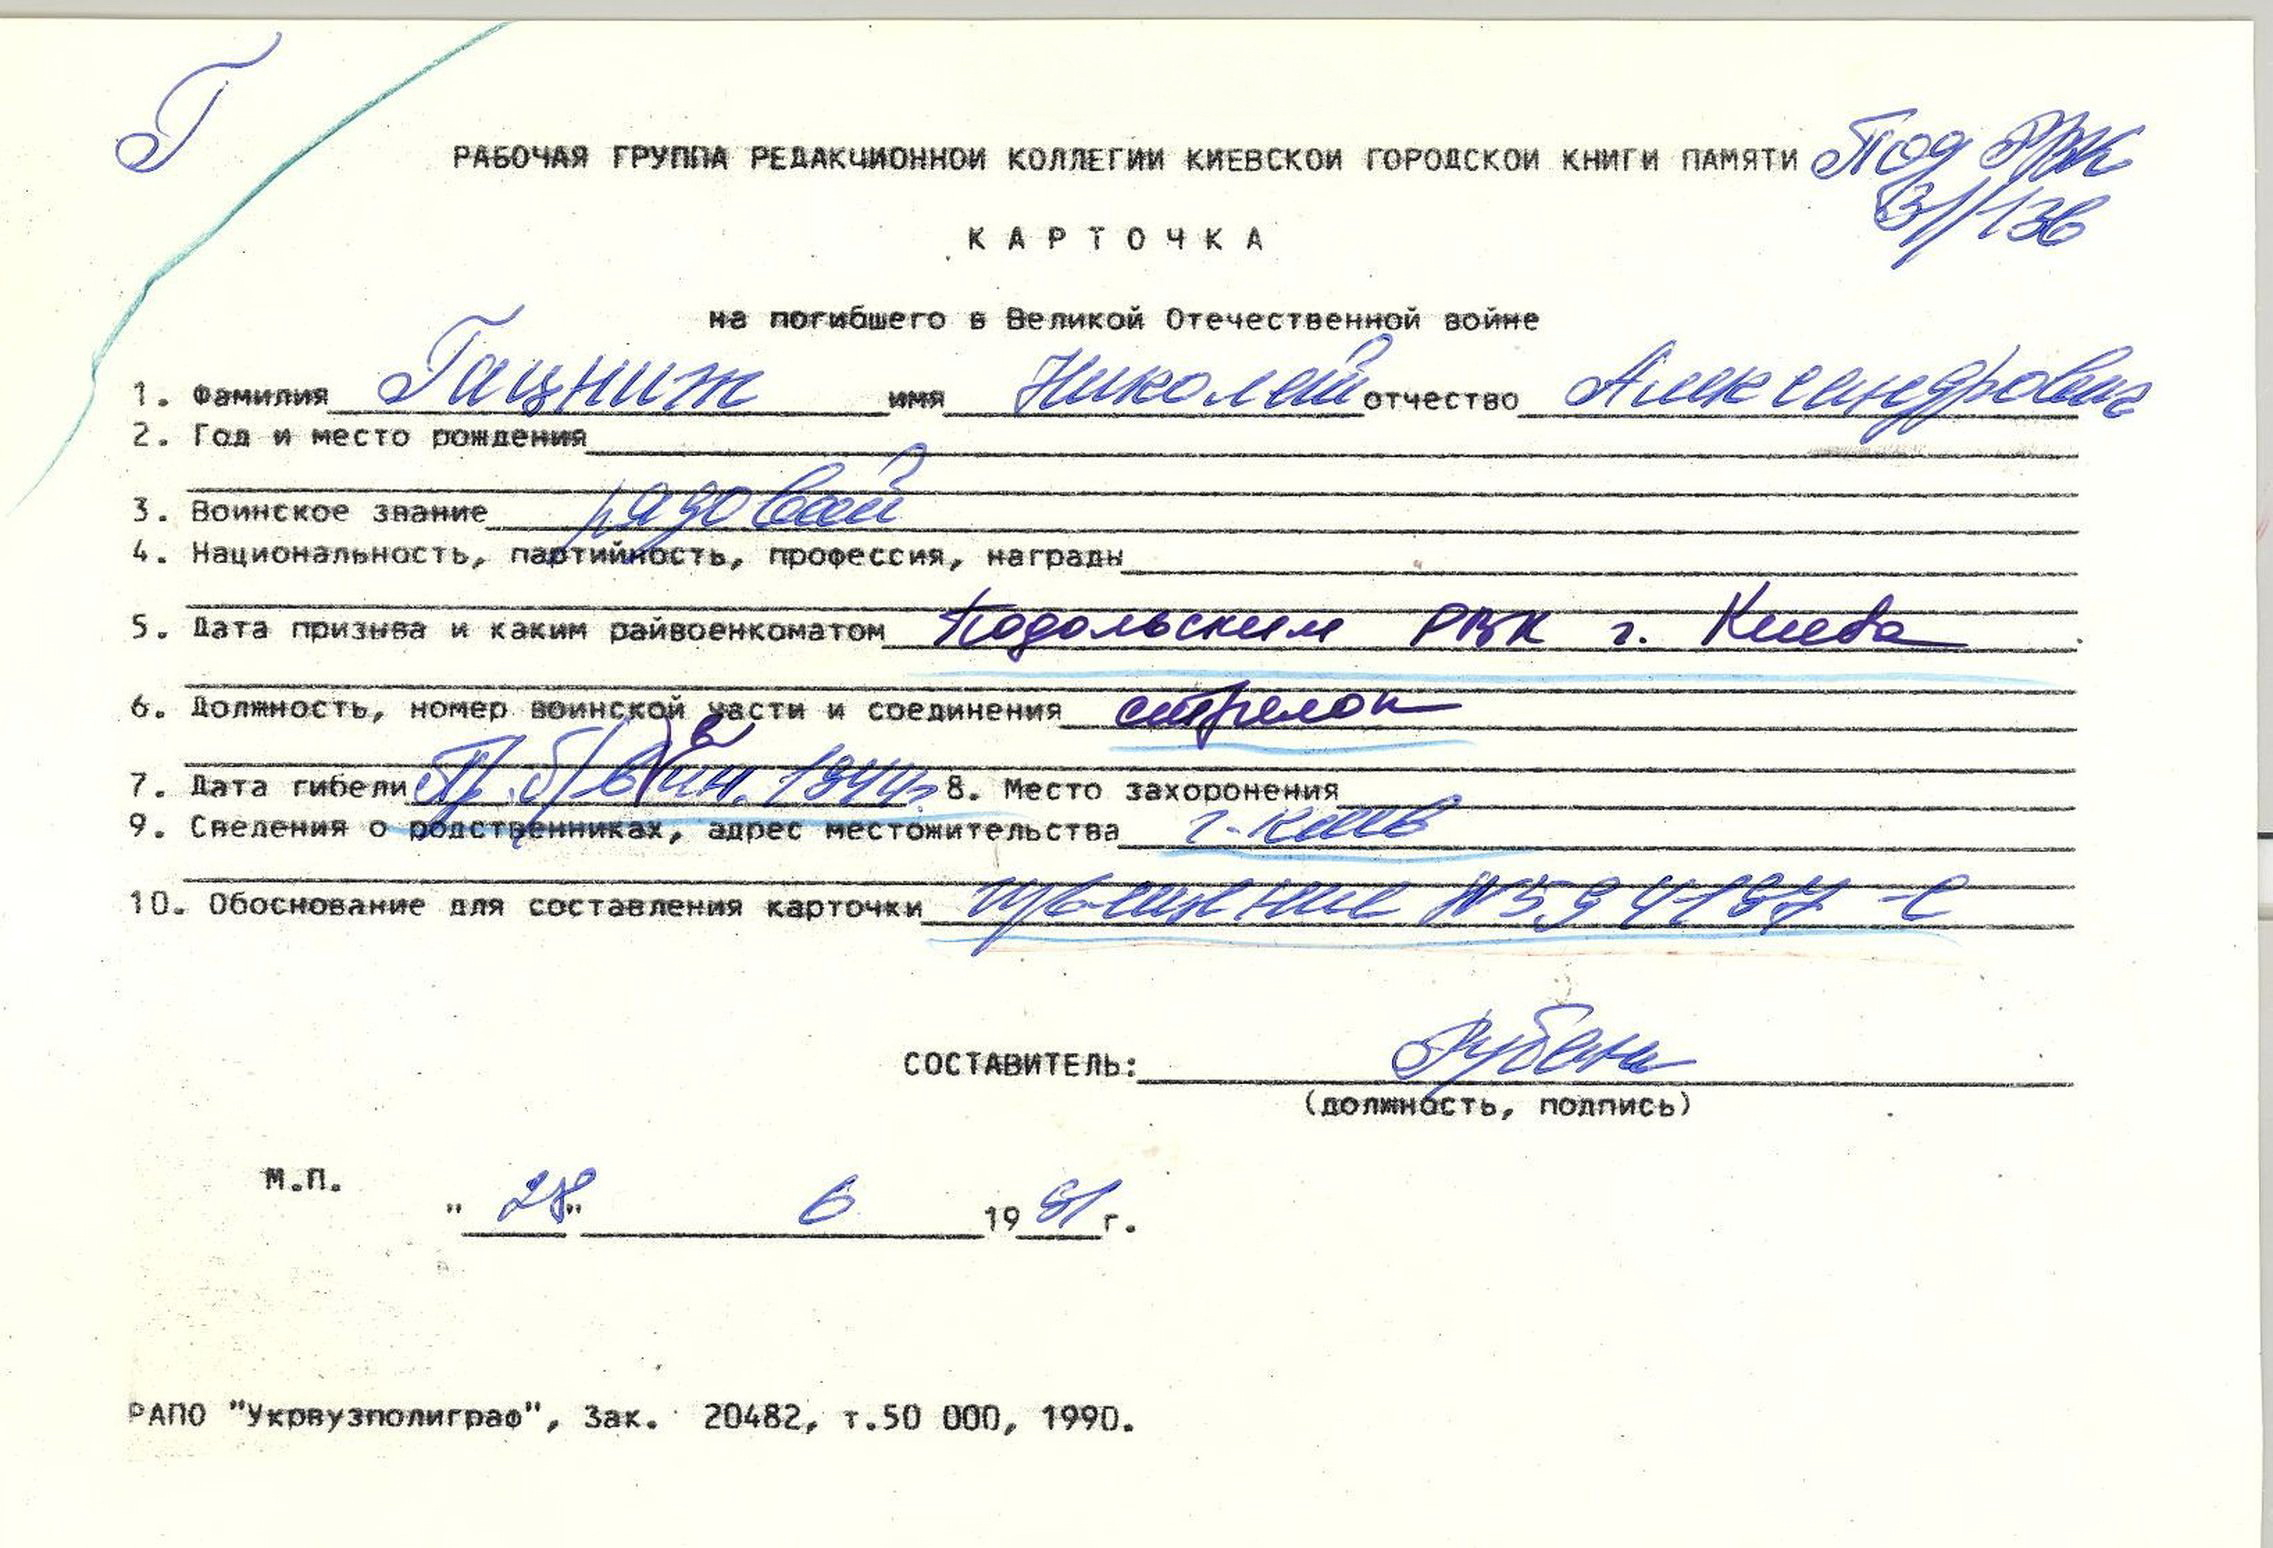 Г
РАБОЧАЯ ГРУППА РЕДАКЦИОННОЙ КОЛЛЕГИИ КИЕВСКОЙ ГОРОДСКОЙ КНИГИ ПАМЯТИ Под РВК
КАРТОЧКА
на погибшего в Великой Отечественной войне
1. Фамилия Гацниж имя Николай отчество Александрович
2. Год и место рождения
3. Воинское звание рядовой
4. Национальность, партийность, профессия, награды
5. Дата призыва и каким райвоенкоматом Подольским РВК г. Киева
6. Должность, номер воинской части и соединения стрелок
7. Дата гибели Пр. б/в в 1944г. 8. Место захоронения
9. Сведения о родственниках, адрес местожительства г. Киев
10. Обоснование для составления карточки извещение N 594187-с
СОСТАВИТЕЛЬ:
(должность, подпись)
М.П.
"28" 6 1991 г.
РАПО "Укрвузполиграф", Зак. 20482, т.50 000, 1990.